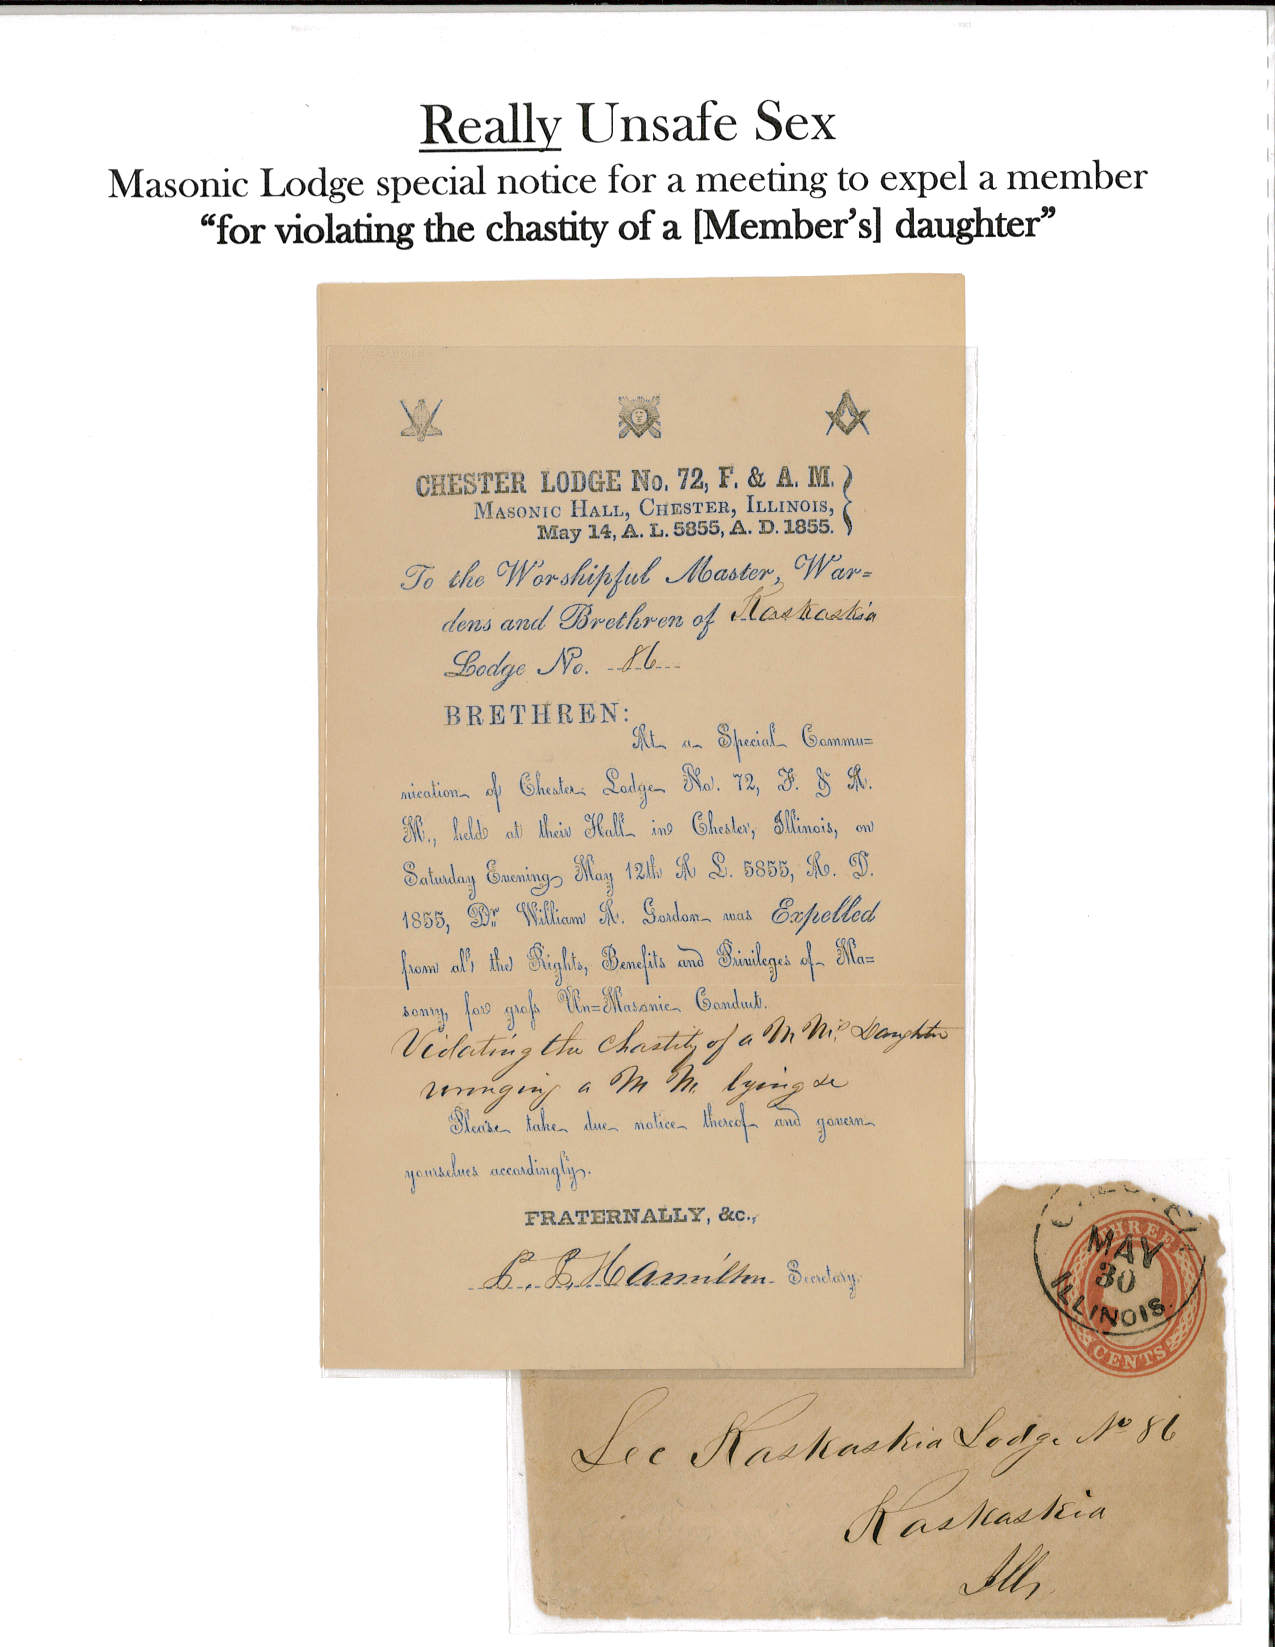 Really Unsafe Sex
Masonic Lodge special notice for a meeting to expel a member
“for violating the chastity of a [Member’s] daughter”
CHESTER LODGE No. 72, F. & A. M.
MASONIC HALL, CHESTER, ILLINOIS,
May 14, A. L. 5855, A. D. 1855.
To the Worshipful Master, War=
dens and Brethren of Kaskaskia
Lodge No. 86
BRETHREN:
At a Special Commu=
nication of Chester Lodge No. 72, F. & A.
M., held at their Hall in Chester, Illinois, on
Saturday Evening May 12th A L. 5855, A. D.
1855, Dr. William A. Gordon was Expelled
from all the Rights, Benefits and Privileges of Ma=
sonry, for gross Un=Masonic Conduct.
Violating the Chastity of a M M's Daughter
wronging a M M. lying &c
Please take due notice thereof and govern
yourselves accordingly.
FRATERNALLY, &c.,
Hamilton Secretary.
THREE
MAY
30
ILLINOIS.
CENTS
Sec Kaskaskia Lodge No 86
Kaskaskia
Ills